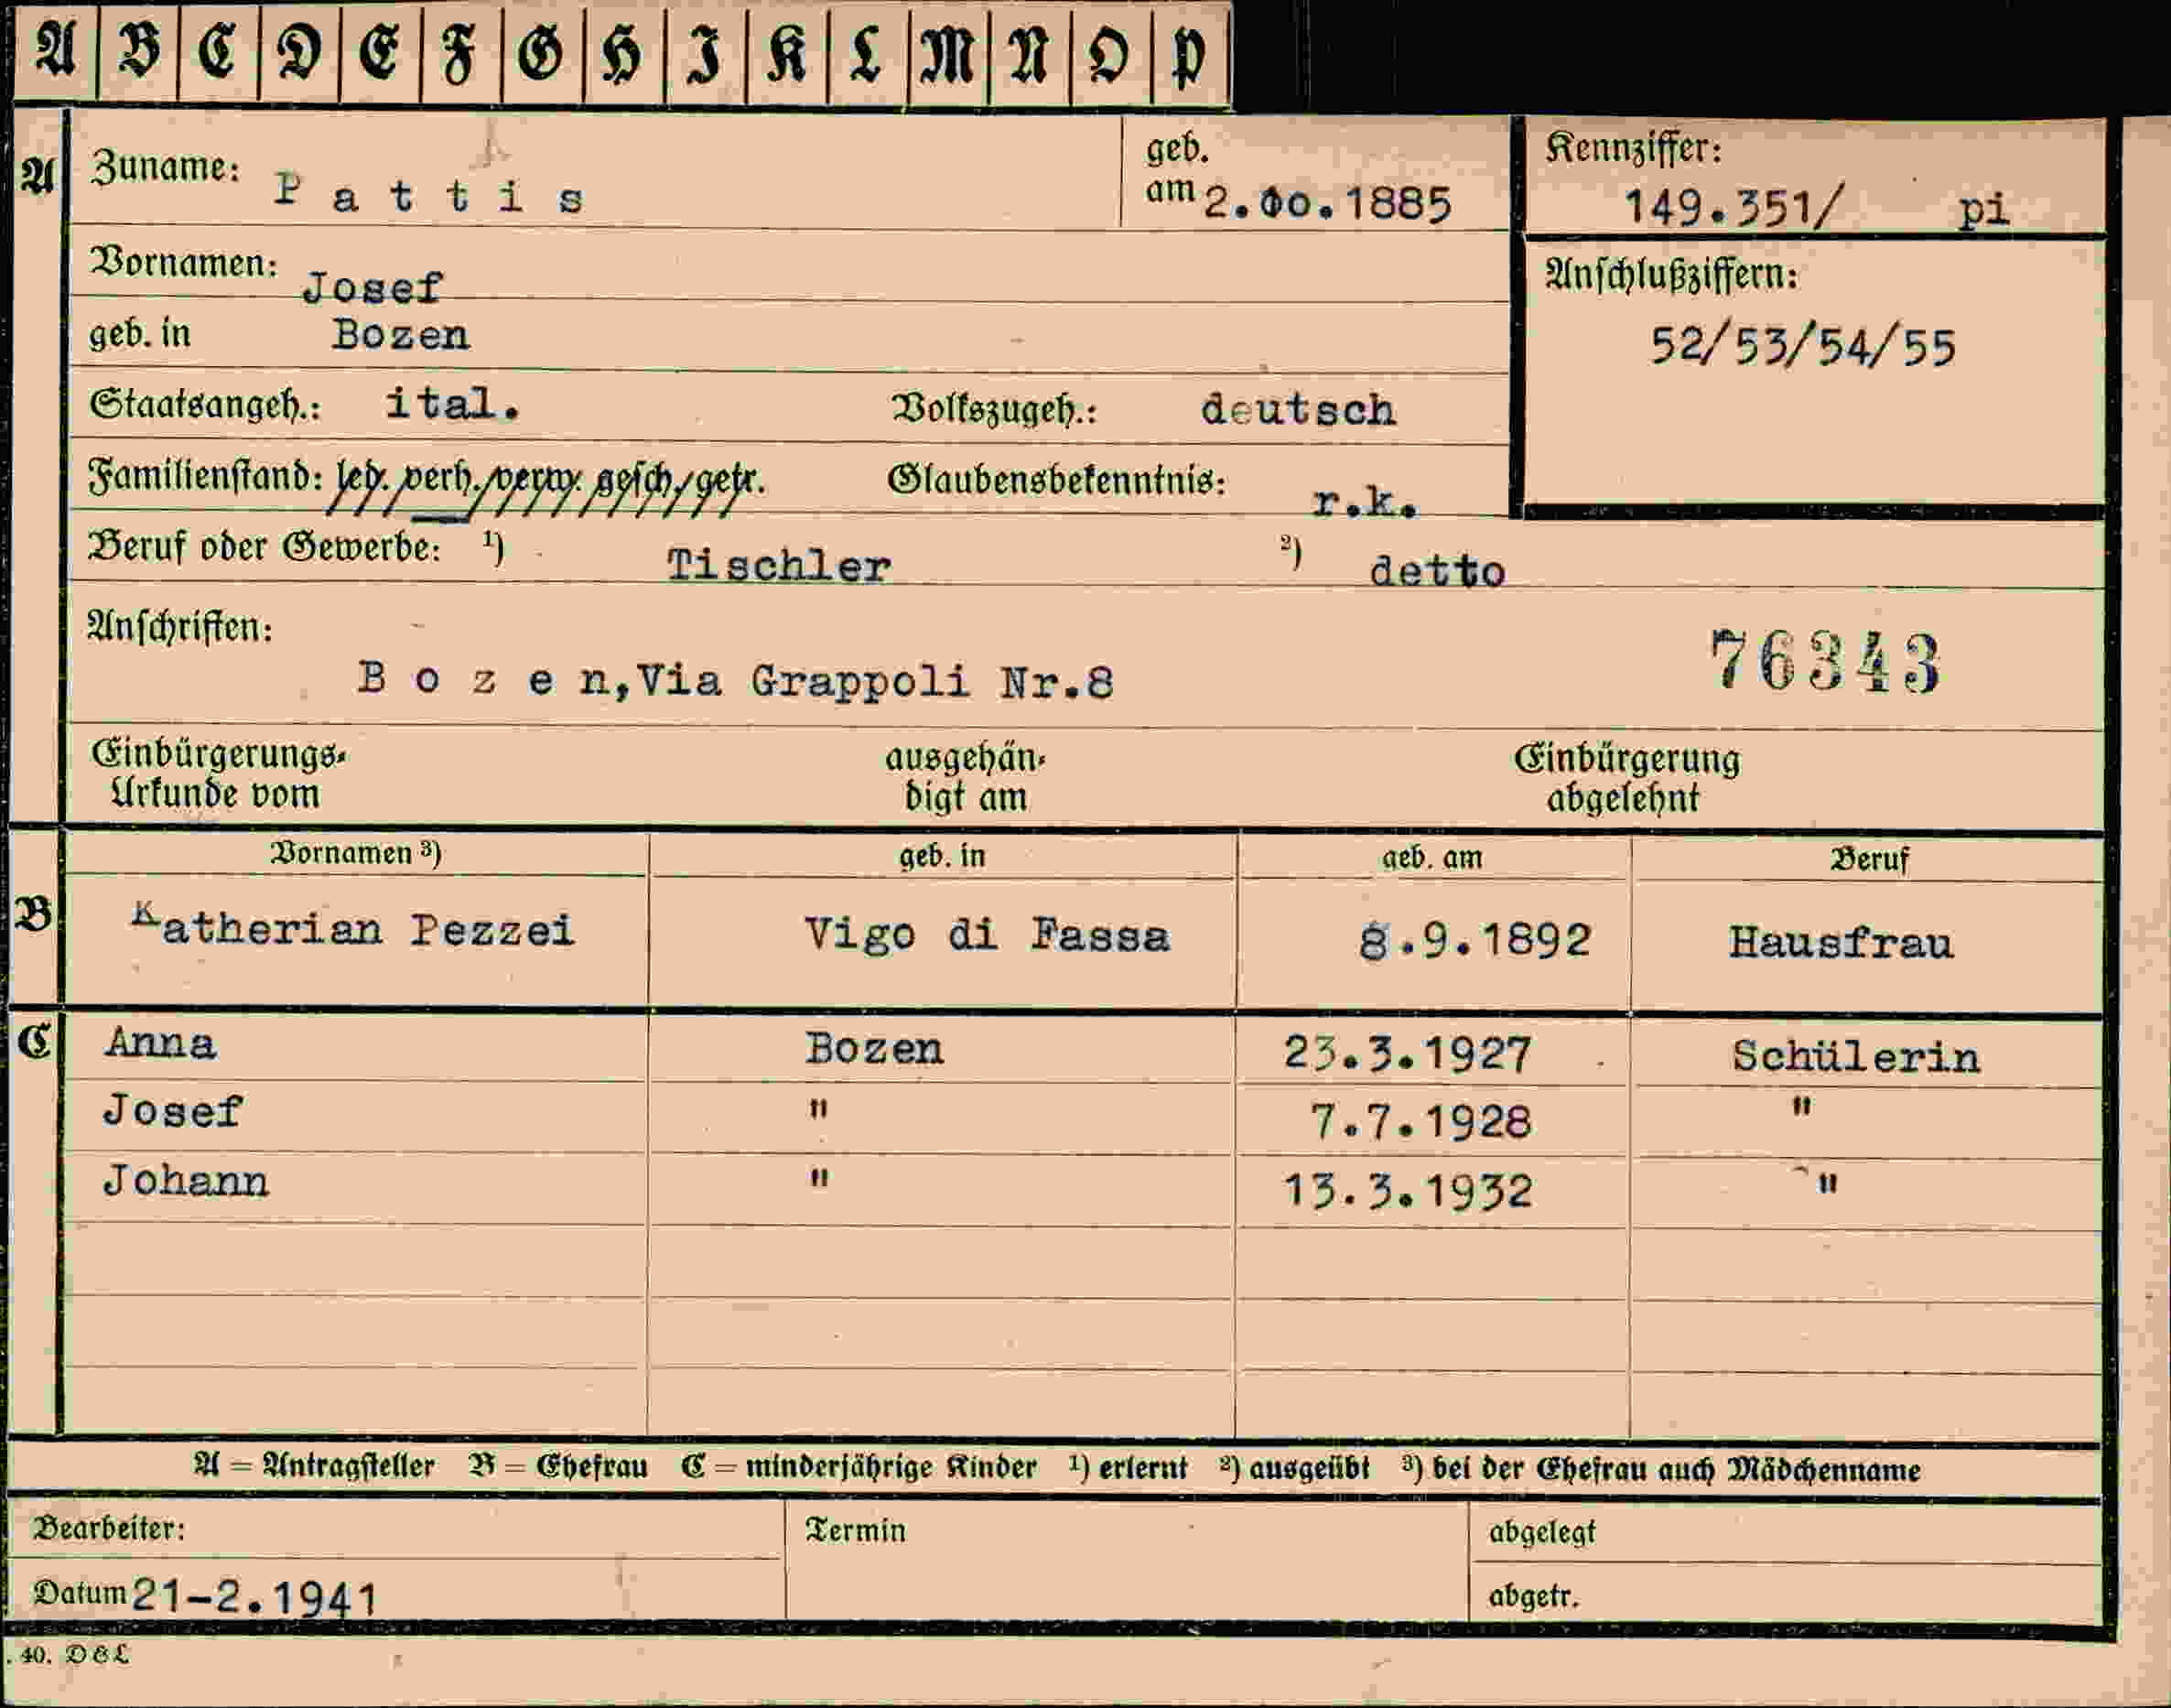 A B C D E F G H I K L M N O P
A Zuname: Pattis geb. am 2.10.1885 Kennziffer: 149.351/ pi
Vornamen: Josef Anschlußziffern:
geb. in Bozen 52/53/54/55
Staatsangeh.: ital. Volkszugeh.: deutsch
Familienstand: led. verh. verw. gesch. getr. Glaubensbekenntnis: r.k.
Beruf oder Gewerbe: ¹) Tischler ²) detto
Anschriften:
Bozen, Via Grappoli Nr.8 76343
Einbürgerungs- ausgehän- Einbürgerung
Urkunde vom digt am abgelehnt
Vornamen ³) geb. in geb. am Beruf
B Katherian Pezzei Vigo di Fassa 8.9.1892 Hausfrau
C Anna Bozen 23.3.1927 Schülerin
Josef " 7.7.1928 "
Johann " 13.3.1932 "
A = Antragsteller B = Ehefrau C = minderjährige Kinder ¹) erlernt ²) ausgeübt ³) bei der Ehefrau auch Mädchenname
Bearbeiter: Termin abgelegt
Datum 21-2.1941 abgetr.
. 40. D & L